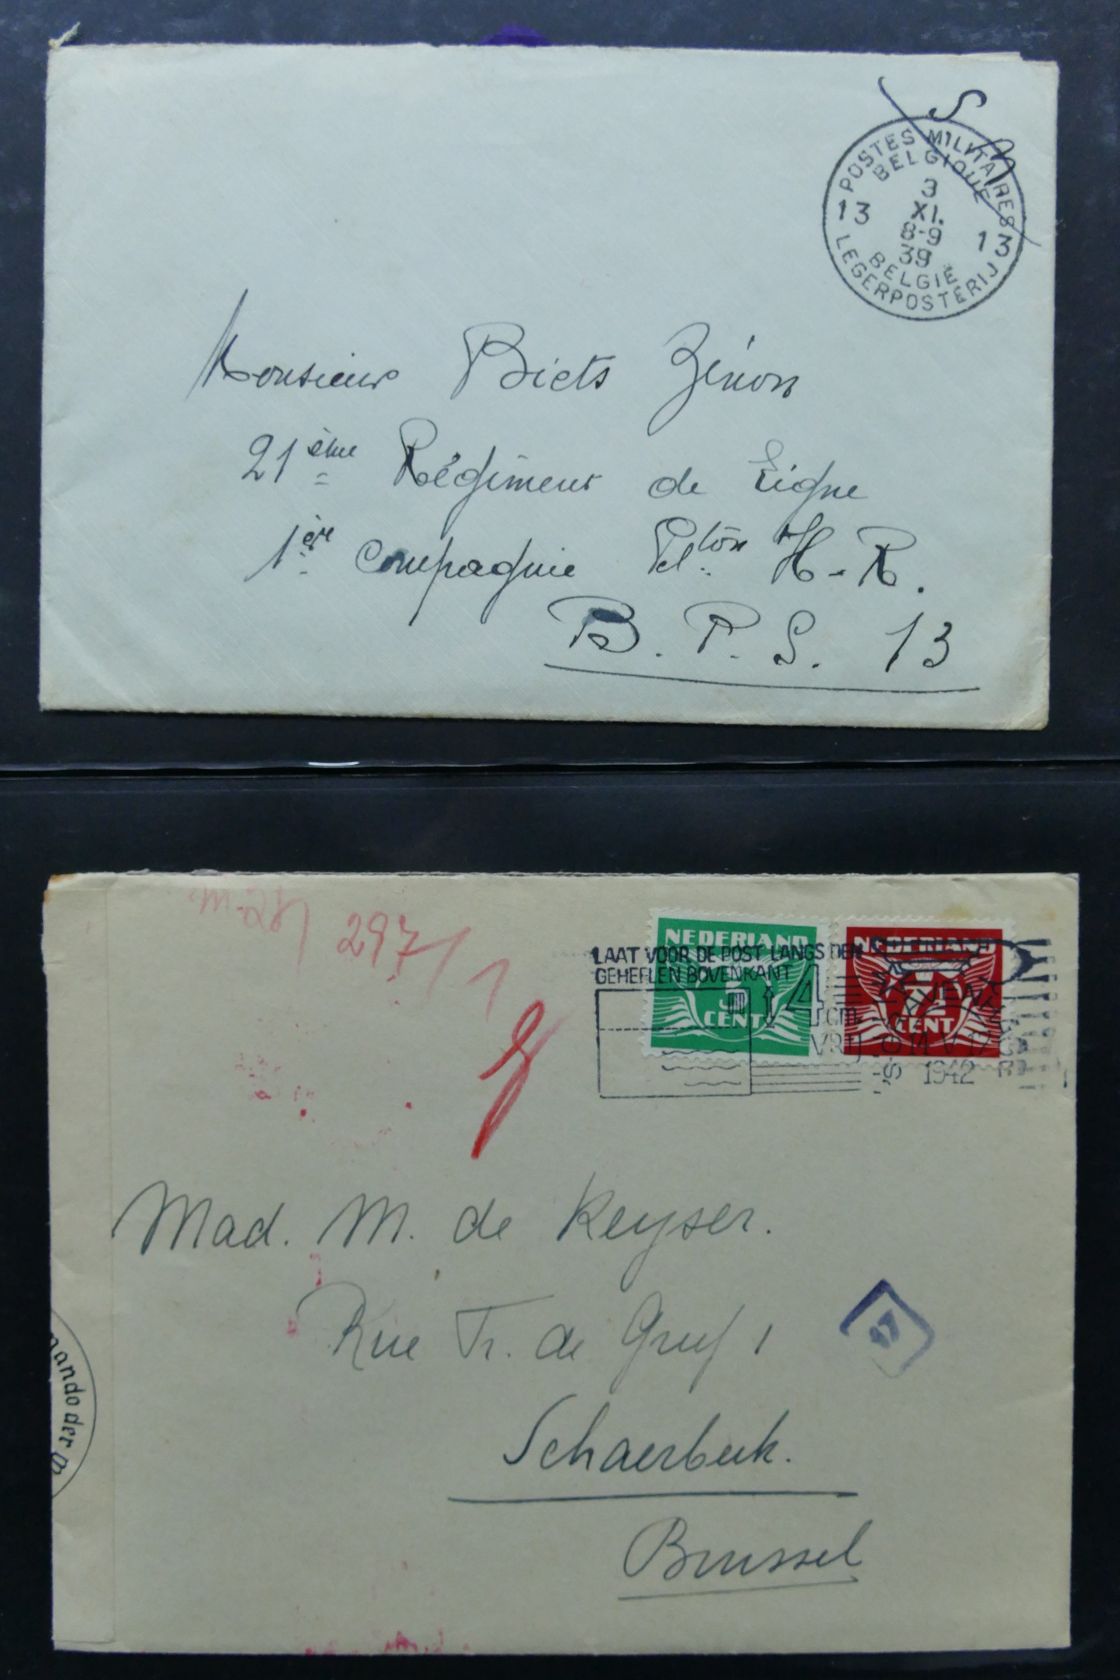 S M
POSTES MILITAIRES
BELGIQUE
3
XI.
13 8-9 13
39
BELGIË
LEGERPOSTERIJ
Monsieur Biets Zénon
21ème Régiment de Ligne
1ère Compagnie Plton H-R.
B. P. S. 13
297/1
NEDERLAND
5
CENT
NEDERLAND
7½
CENT
LAAT VOOR DE POST LANGS DEN
GEHEELEN BOVENKANT
4
cm
VRIJ
1942
Mad. M. de Keyser.
Rue Fr. de Greef 1
17
Schaerbeek.
Brussel
mando der